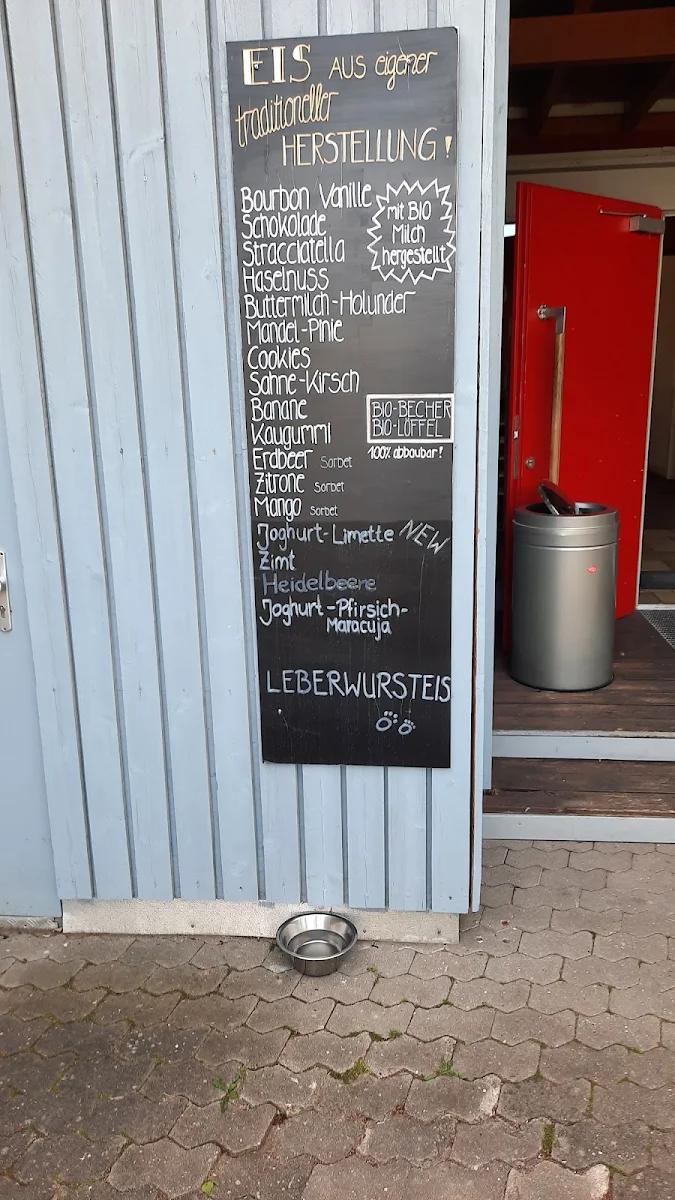 EIS AUS eigener
traditioneller
HERSTELLUNG!
Bourbon Vanille
Schokolade
Stracciatella
Haselnuss
Buttermilch-Holunder
Mandel-Pinie
Cookies
Sahne-Kirsch
Banane
Kaugummi
Erdbeer Sorbet
Zitrone Sorbet
Mango Sorbet
Joghurt-Limette NEW
Zimt
Heidelbeere
Joghurt-Pfirsich-
Maracuja
LEBERWURSTEIS
mit BIO
Milch
hergestellt
BIO-BECHER
BIO-LÖFFEL
100% abbaubar!